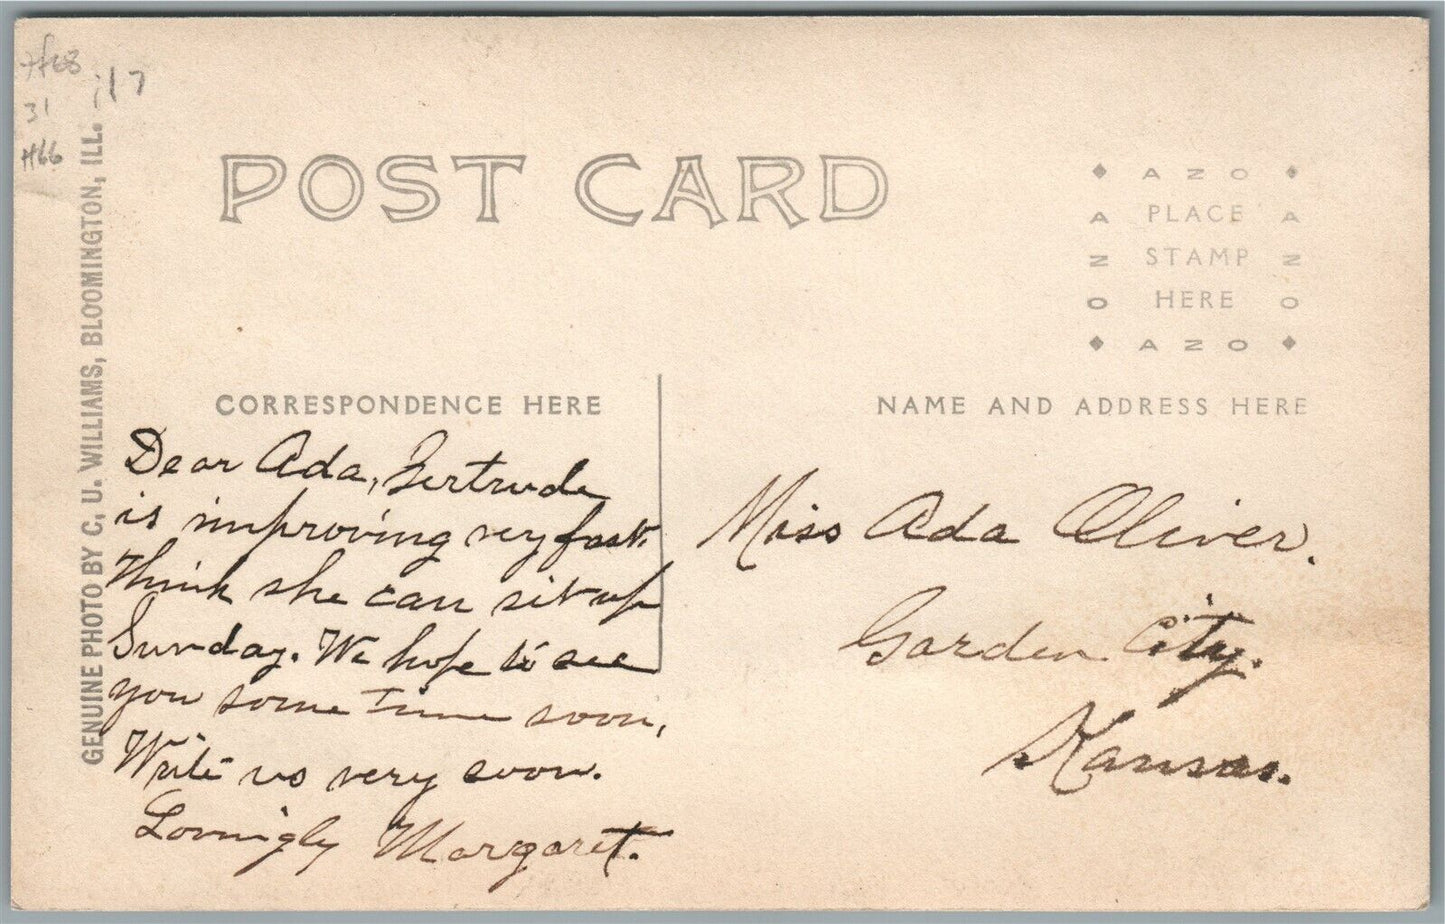 #68
31
#66
17
GENUINE PHOTO BY C. U. WILLIAMS, BLOOMINGTON, ILL.
POST CARD
AZO
PLACE
STAMP
HERE
AZO
AZO
AZO
CORRESPONDENCE HERE
Dear Ada, Gertrude
is improving very fast.
Think she can sit up
Sunday. We hope to see
you some time soon,
Write us very soon.
Lovingly Margaret.
NAME AND ADDRESS HERE
Miss Ada Oliver.
Garden City.
Kansas.